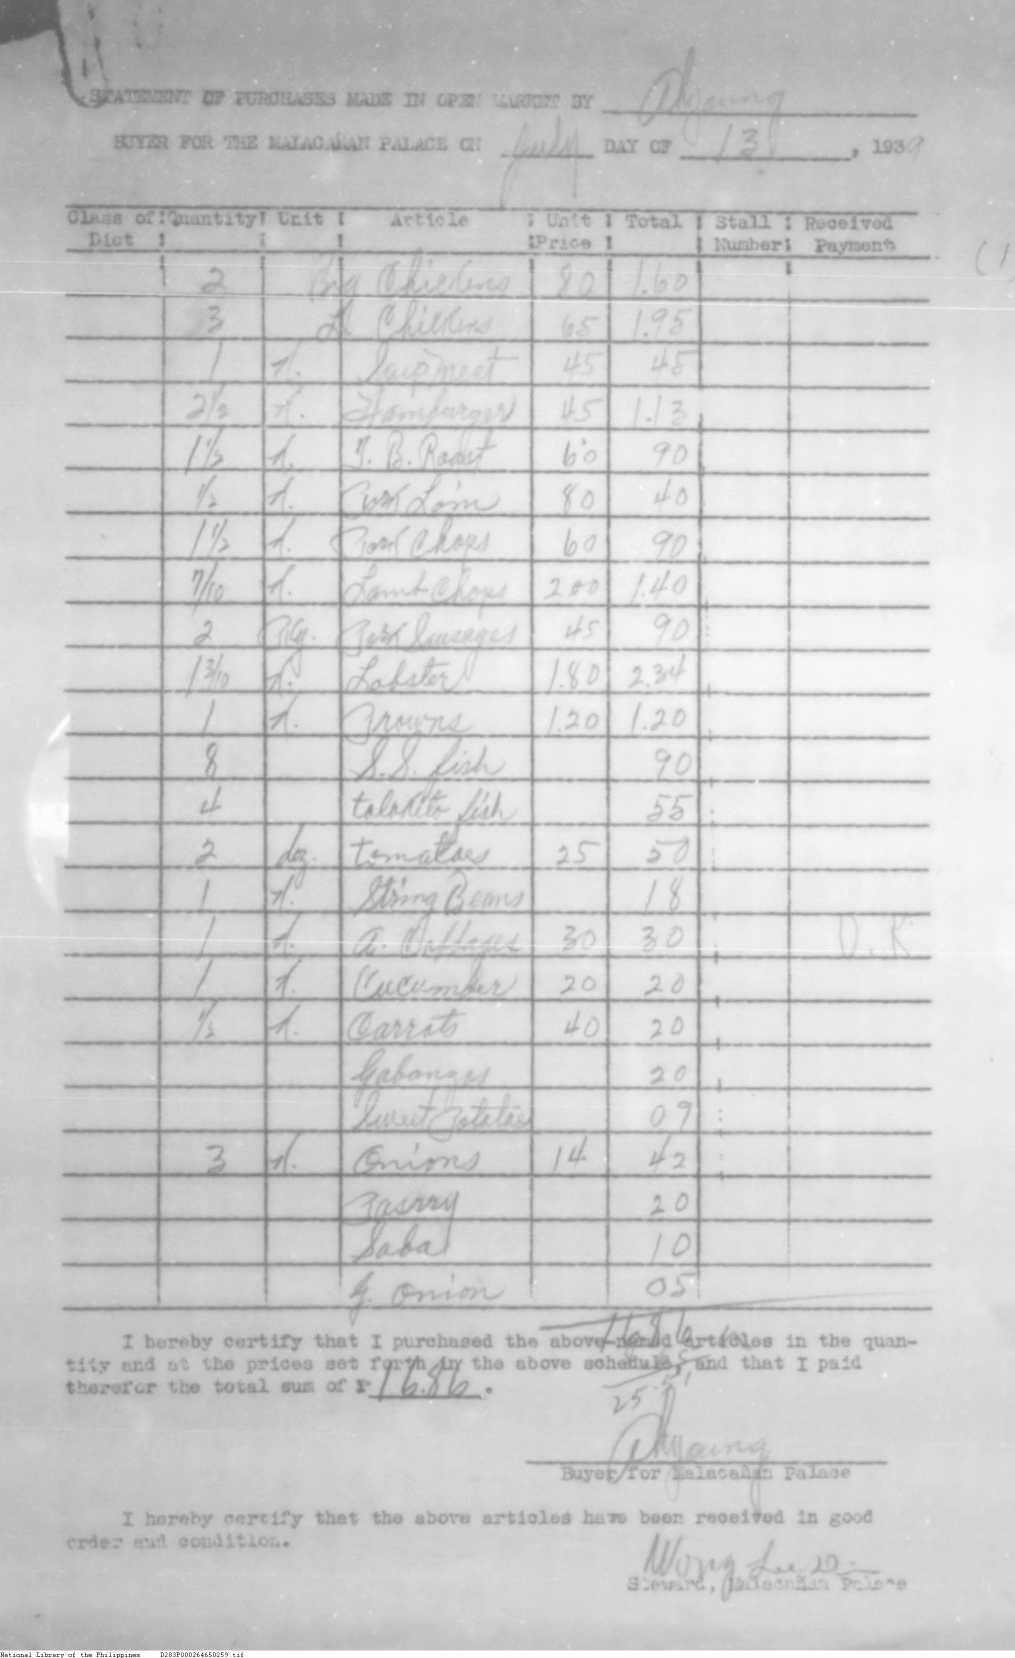 STATEMENT OF PURCHASES MADE IN OPEN MARKET BY
BUYER FOR THE MALACAÑAN PALACE ON July DAY OF 13, 1939
Class of Dict Quantity Unit Article Unit Price Total Stall Number Received Payment
2 Big Chickens 80 1.60
3 Chickens 65 1.95
1 K. Soup meet 45 45
2 1/2 K. Hamburger 45 1.13
1 1/2 K. T. B. Roast 60 90
1/2 K. Pork Loin 80 40
1 1/2 K. Pork Chops 60 90
7/10 K. Lamb Chops 2.00 1.40
2 Pkg. Pork Sausages 45 90
1 3/10 K. Lobster 1.80 2.34
1 K. Prowns 1.20 1.20
8 S.S. fish 90
4 talakito fish 55
2 doz. tomatoes 25 50
1 K. String Beans 18
1 K. 30 30
O.K
1 K. Cucumber 20 20
1/2 K. Carrots 40 20
Gabanzos 20
Sweet Potatoes 09
3 K. Onions 14 42
20
Saba 10
G. Onion 05
16.86
I hereby certify that I purchased the above-named articles in the quan-
tity and at the prices set forth in the above schedule, and that I paid
therefor the total sum of ₱ 16.86.
Buyer for Malacañan Palace
I hereby certify that the above articles have been received in good
order and condition.
Wong
Steward, Malacañan Palace
National Library of the Philippines D283P000264650259.tif